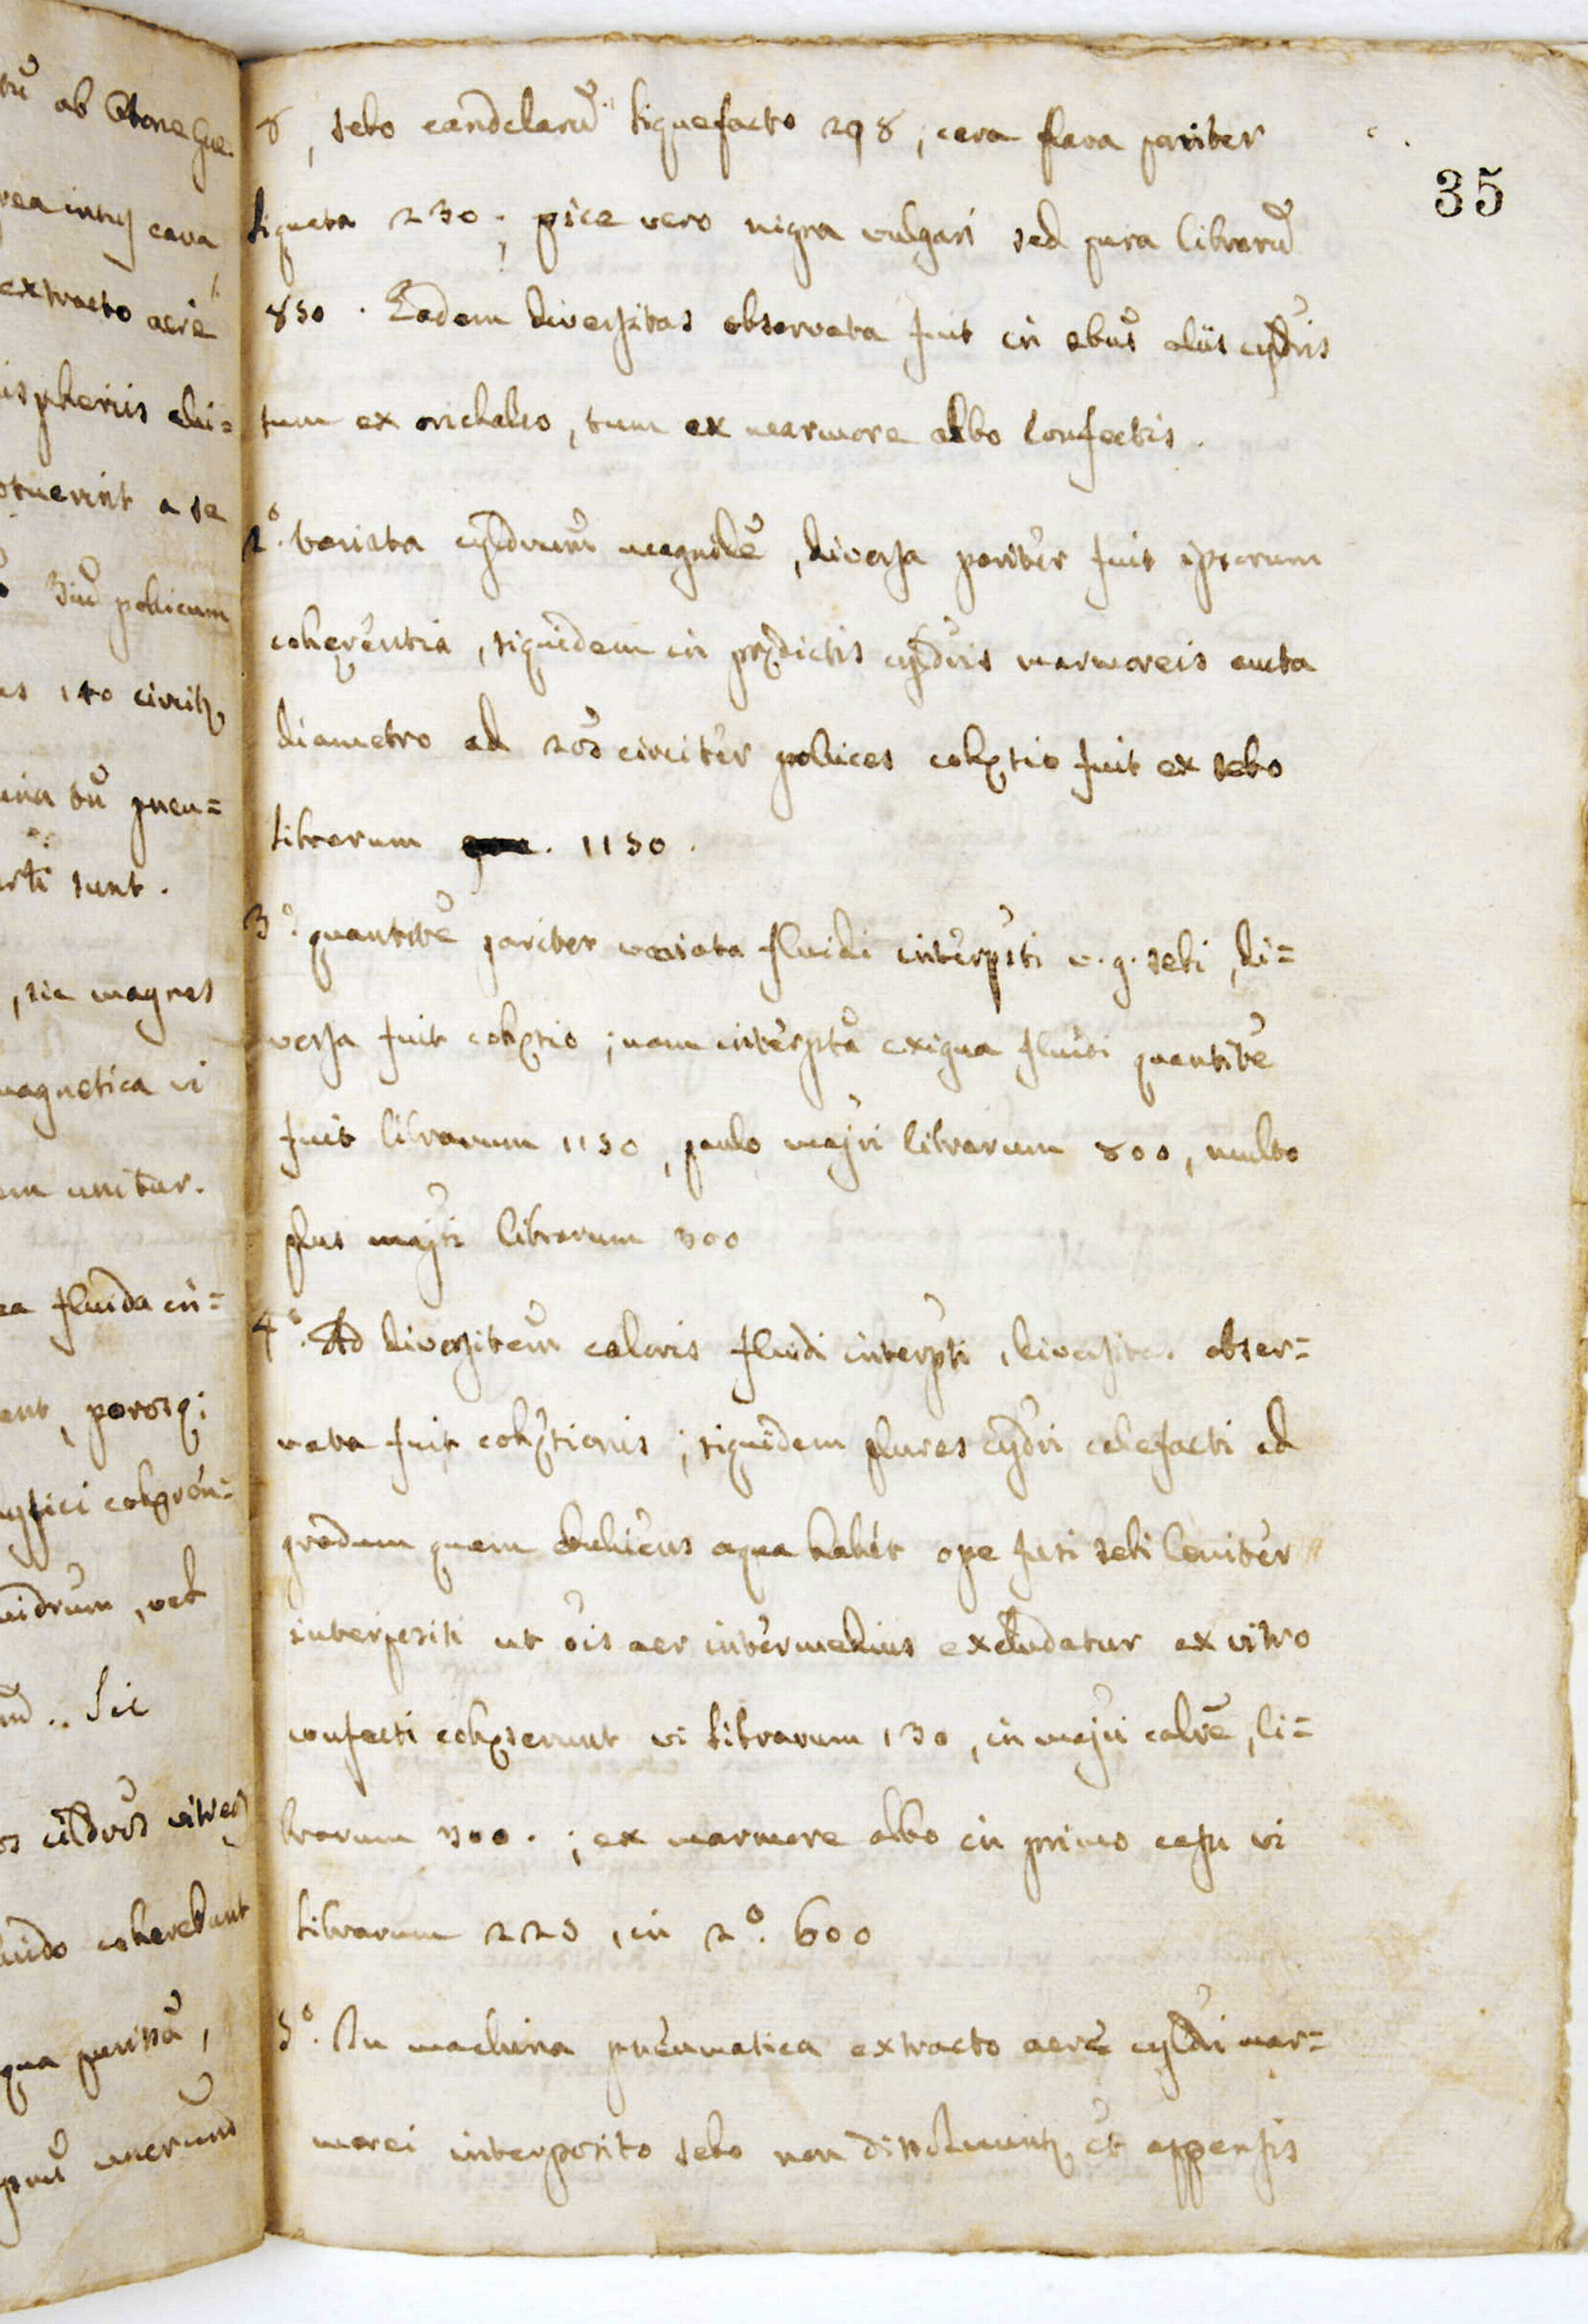 tū ab Otone Gue.
rea intus cava
extracto aere
ispheriis dui=
otuerint a se
3iū pollicum
as 140 circitꝫ
ina tū pneu=
sunt.
, sic magnes
magnetica vi
em unitur.
ea fluida in=
ent, porosq;
cohęren=
vidrum, vel
.. Sic
os cildros vitreos
luido coherebant
qua

35
8, sebo candelarū liquefacto 298, cera flava pariter
liquata 230; pice vero nigra vulgari sed pura librarū
850. Eadem diversitas observata fuit in obus aliis cyldris
tum ex orichalco, tum ex marmore albo confectis.
2º. Variata cyldrorum magnitdē, diversa pariter fuit ipsorum
coherentia, siquidem in prędictis cyldris marmoreis aucta
diametro ad 2os circiter pollices cohęsio fuit ex sebo
librarum 1150.
3º. quantitē pariter variata fluidi interpsti v.g. sebi, di=
versa fuit cohęsio; nam interpsta exigua fluidi quantitē
fuit librarum 1150, paulo majri librarum 800, multo
plus majri librarum 300
4º. Ad diversitem caloris fluidi interpsti, diversitas obser=
vata fuit cohęsionis; siquidem plures cyldri calefacti ad
gradum quem bulliens aqua habet ope fusi sebi leniter
interpositi ut ois aer intermedius excludatur ex vitro
confecti cohęserunt vi librarum 130, in majri calrē, li=
brarum 300.; ex marmore albo in primo casu vi
librarum 225, in 2º. 600
5º. In machina pneumatica extracto aere cyldri mar=
morei interposito sebo non dissolvuntꝫ et appensis